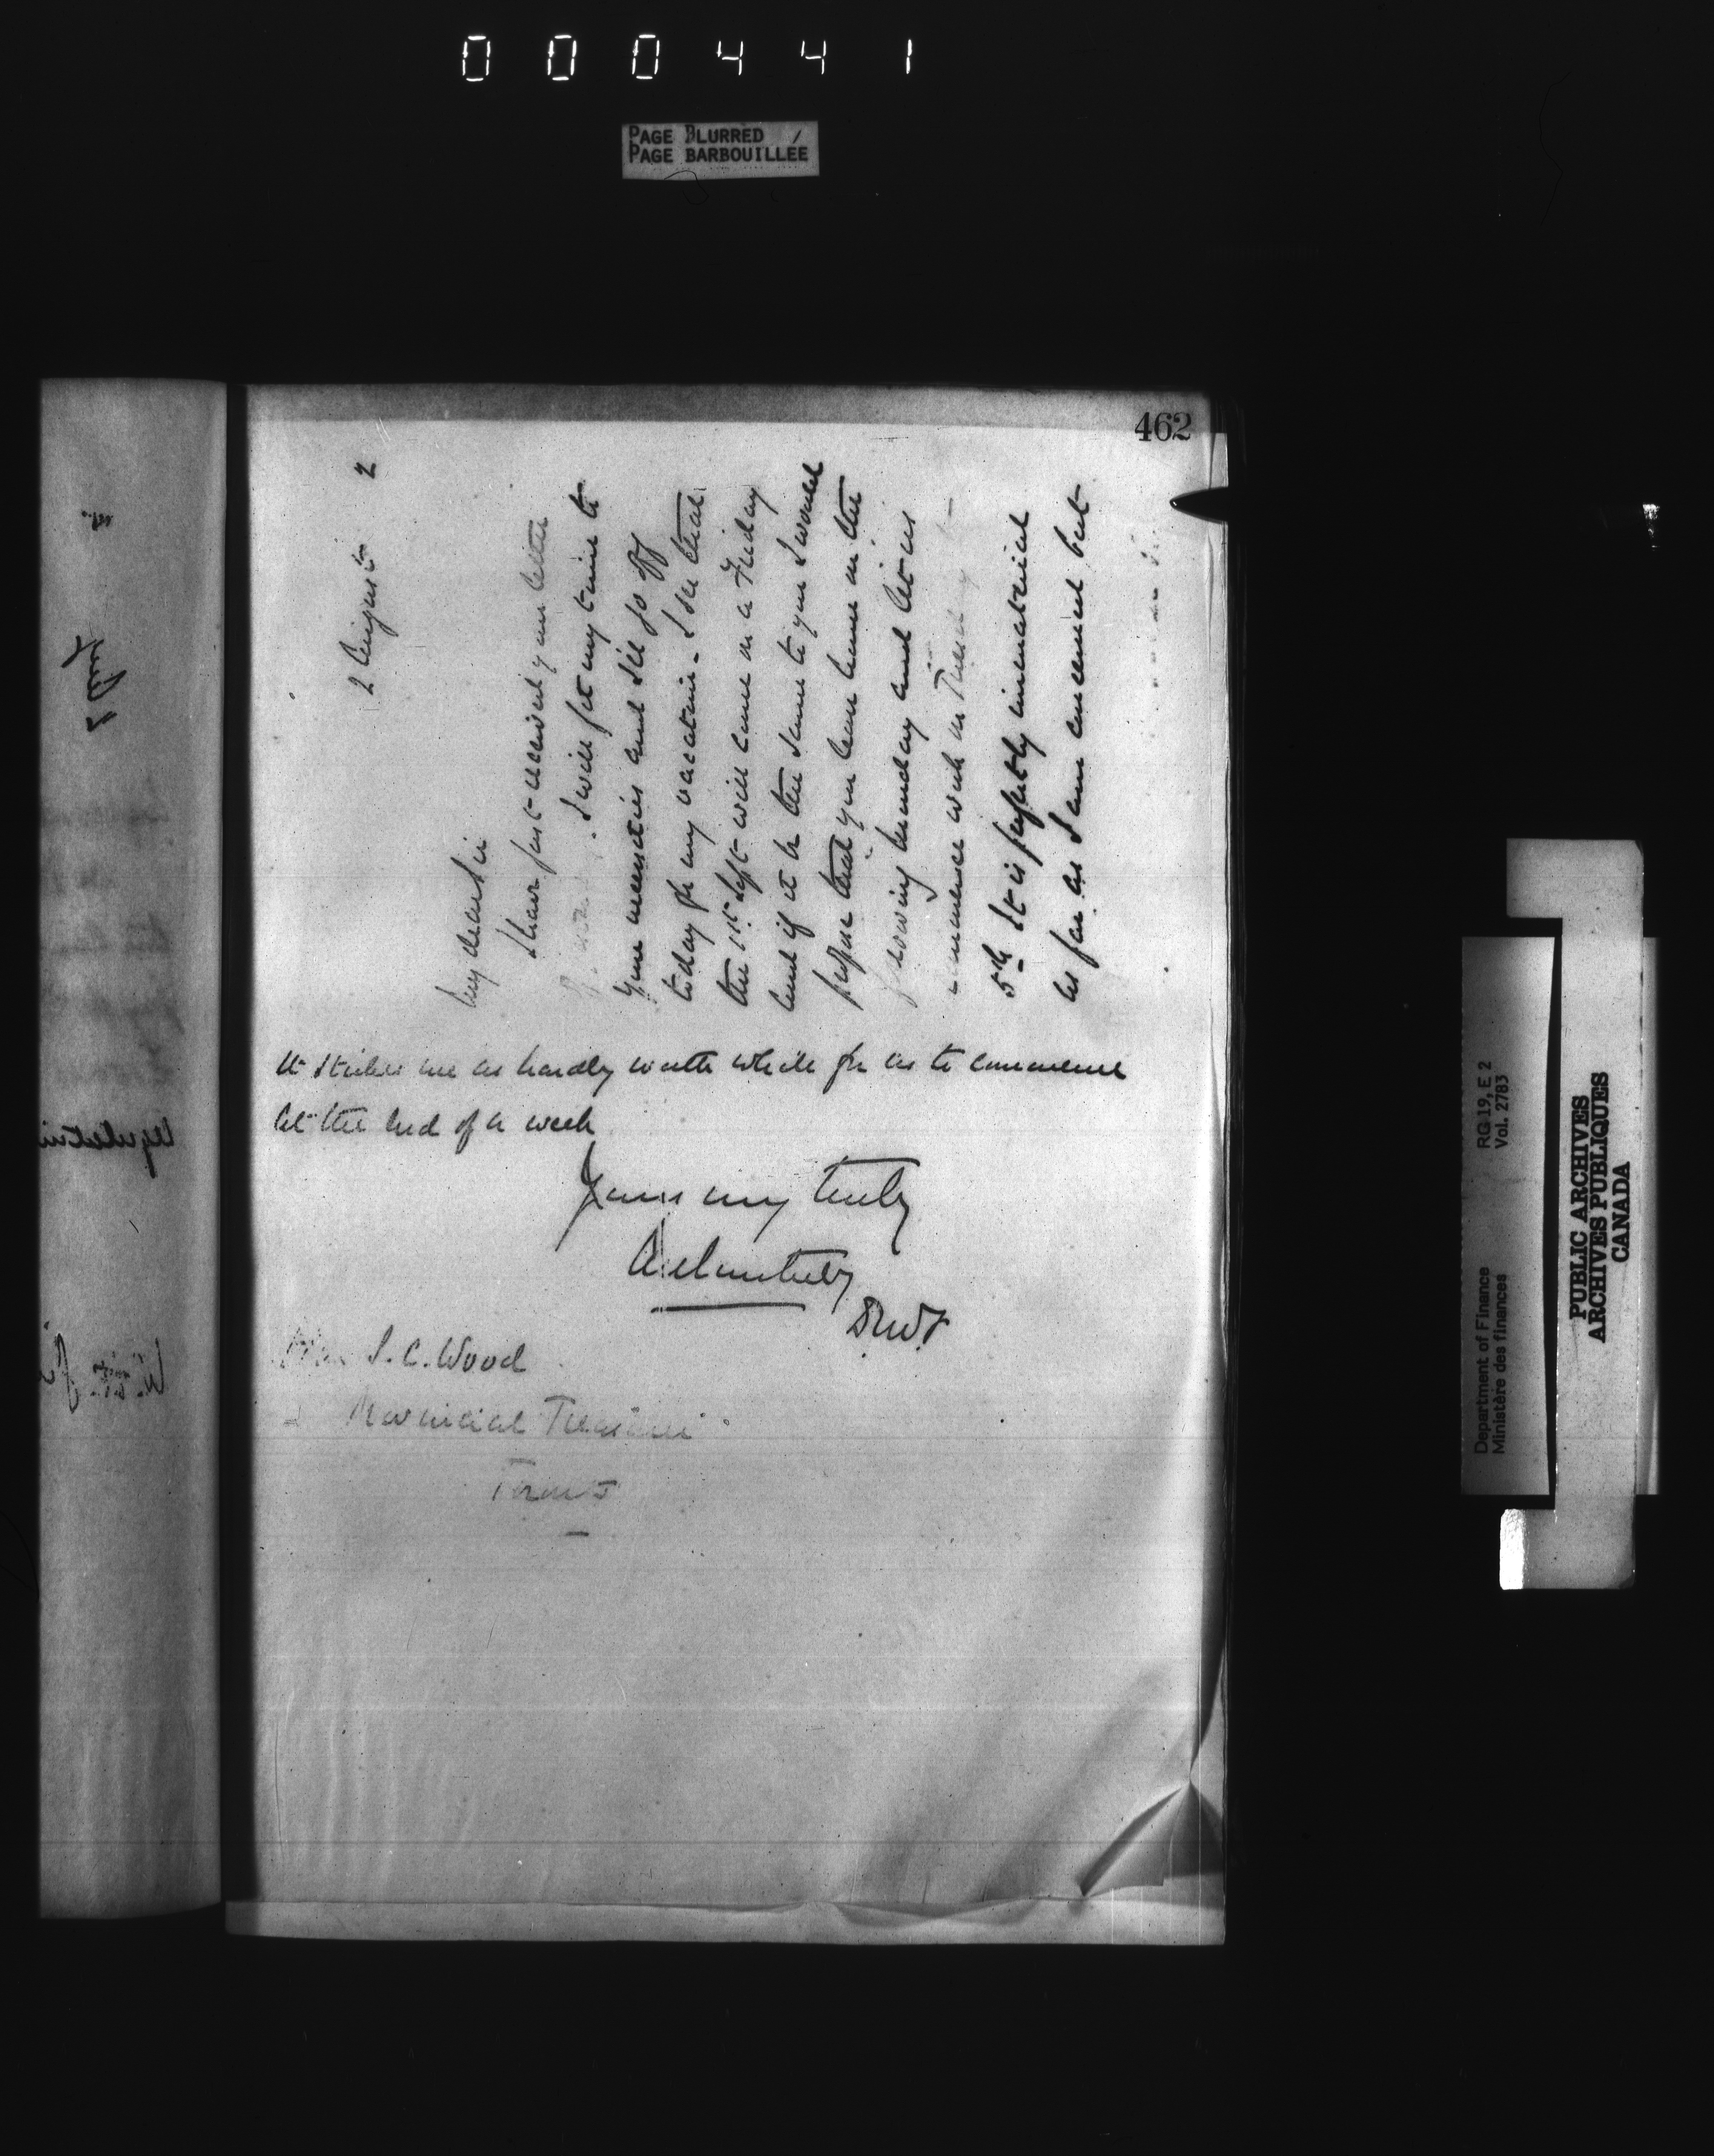 000441
PAGE BLURRED
PAGE BARBOUILLÉE
462
2 August 2
My dear Sir
I have just received your letter
I will fit my time to
your necessities and I'll go off
today for my vacation - I see that
the 1st Sept will come on a Friday
and if it be the same to you I would
propose that you leave home on the
following Monday and let us
commence work on Tuesday
5th It is perfectly immaterial
as far as I am concerned but
it strikes me as hardly worth while for us to commence
at the end of a week
Yours very truly
Hon S. C. Wood
Provincial Treasurer
Toronto
Department of Finance RG 19, E 2
Ministère des finances Vol. 2783
PUBLIC ARCHIVES
ARCHIVES PUBLIQUES
CANADA